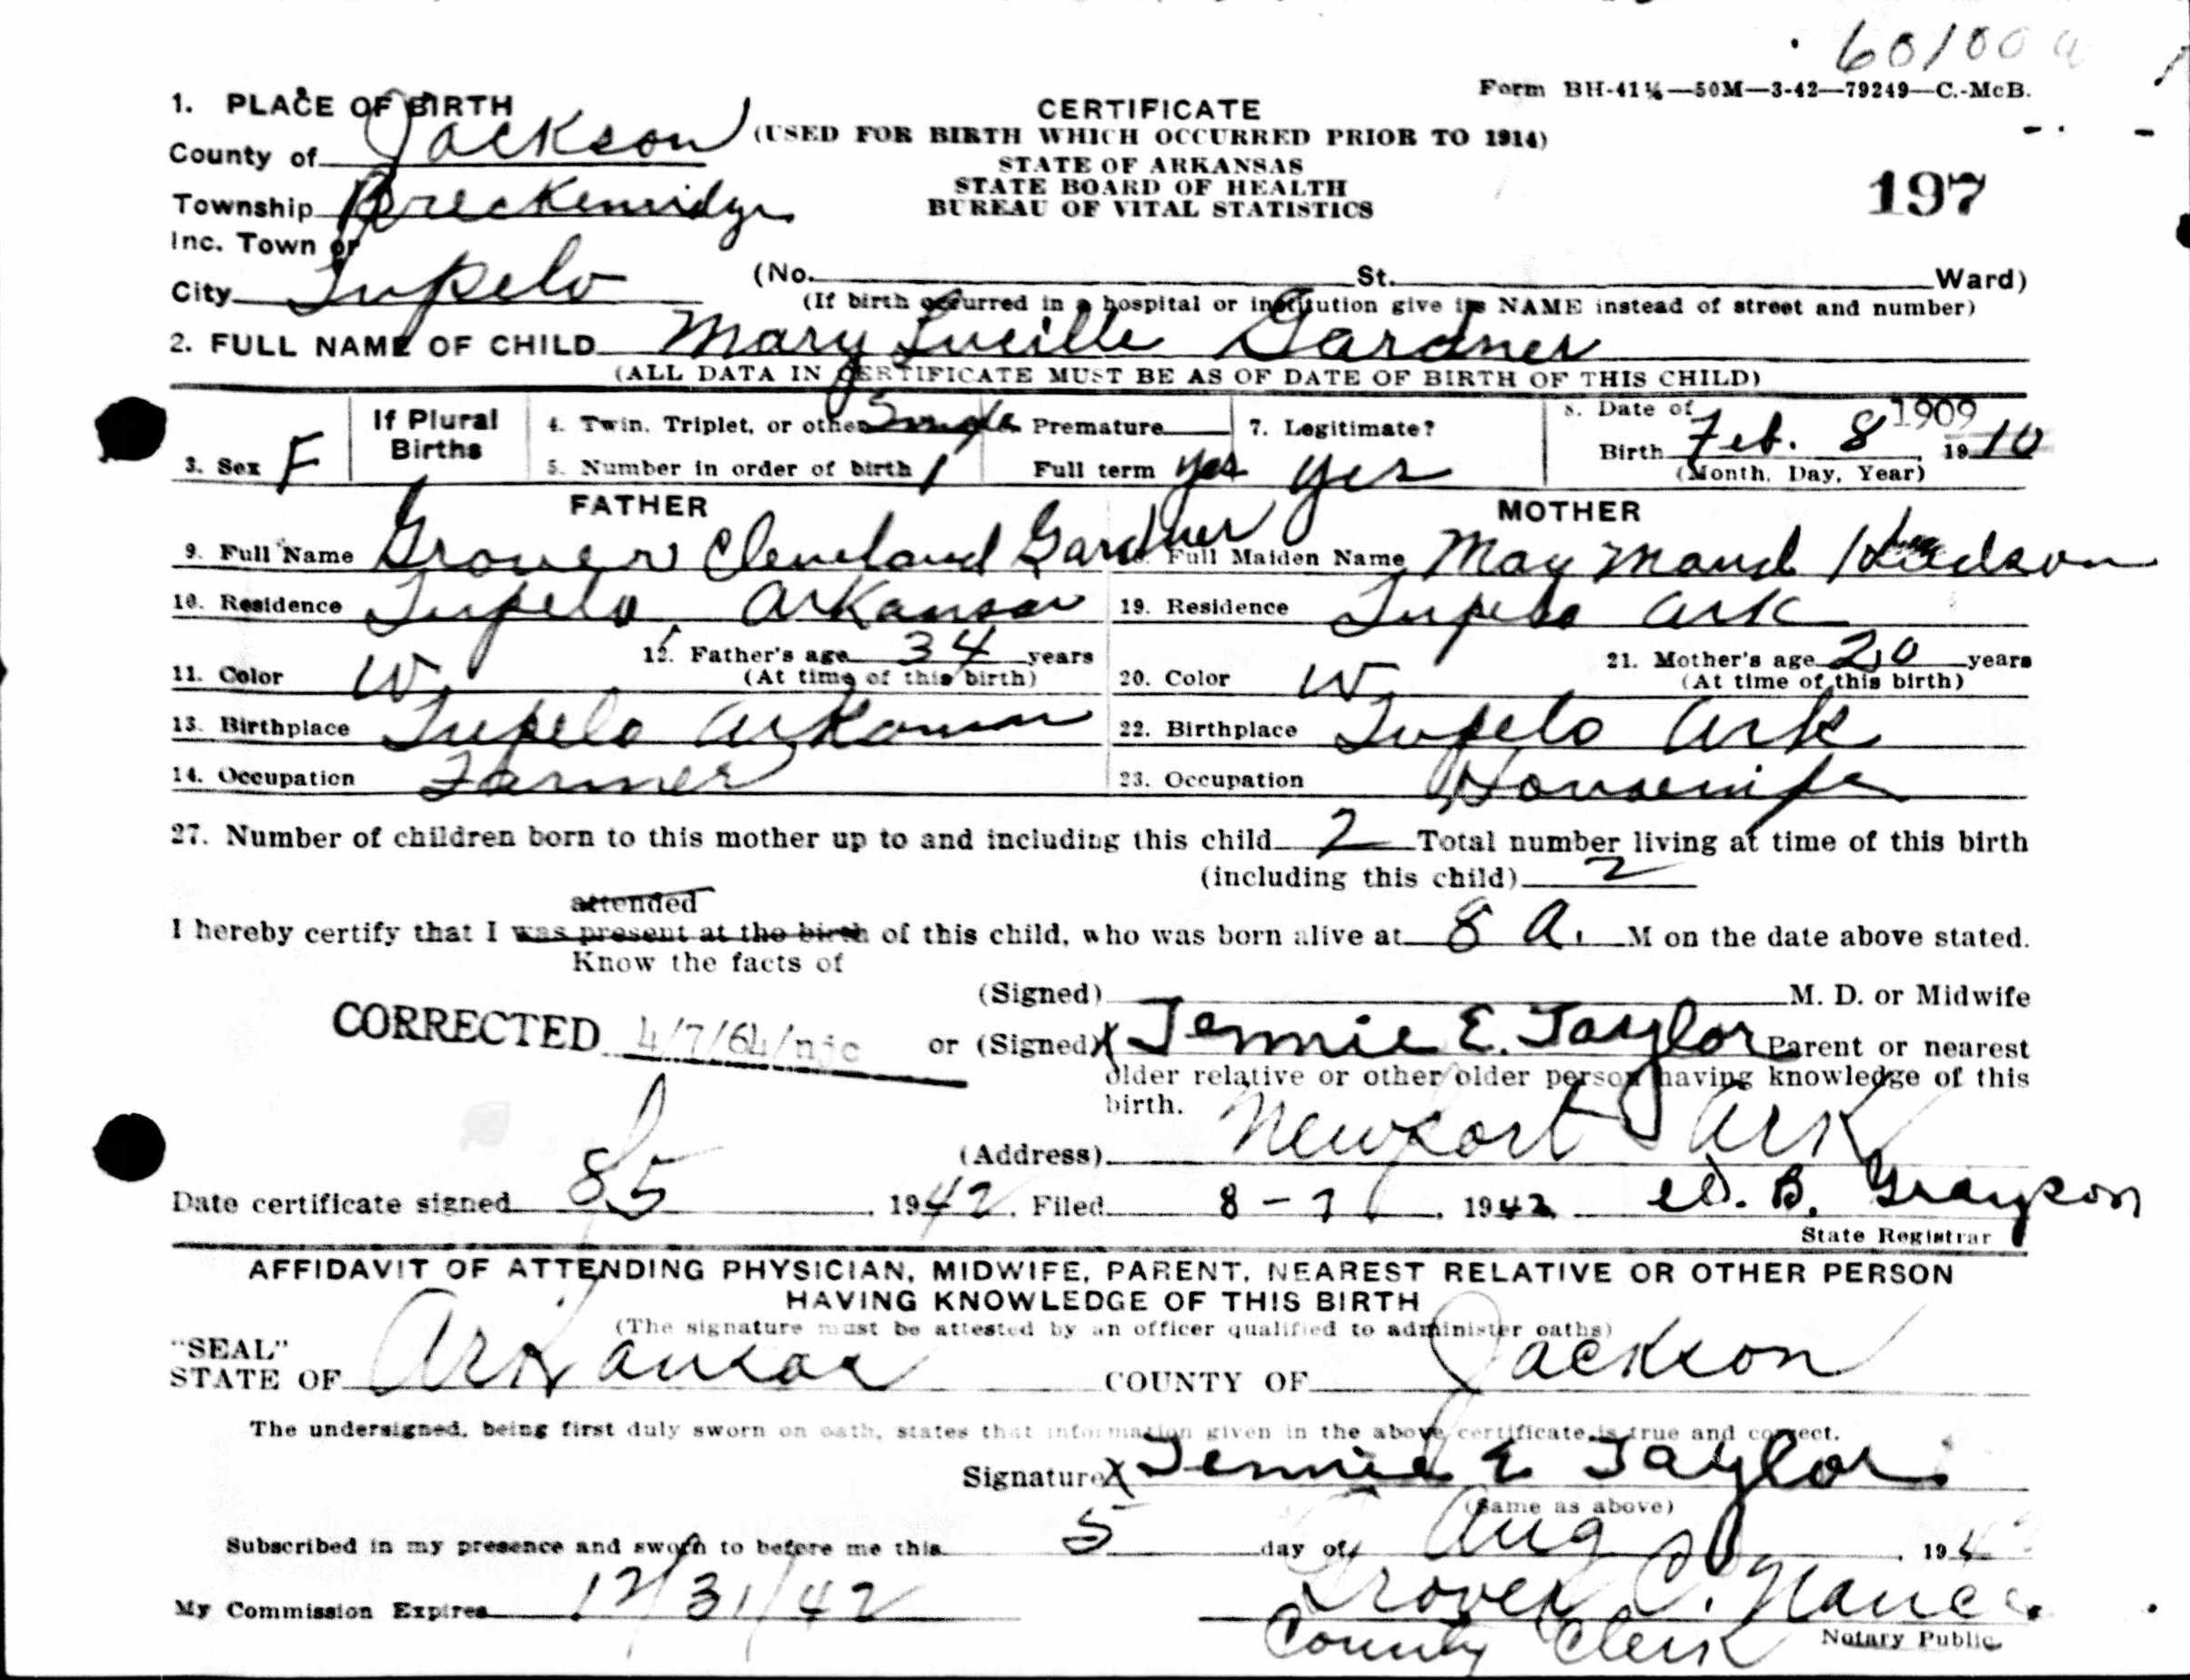 60100
Form BH-41½—50M—3-42—79249—C.-McB.
1. PLACE OF BIRTH
CERTIFICATE
County of Jackson
(USED FOR BIRTH WHICH OCCURRED PRIOR TO 1914)
STATE OF ARKANSAS
STATE BOARD OF HEALTH
BUREAU OF VITAL STATISTICS
197
Township Breckenridge
Inc. Town or
City Tupelo (No. St. Ward)
(If birth occurred in a hospital or institution give its NAME instead of street and number)
2. FULL NAME OF CHILD Mary Lucille Gardner
(ALL DATA IN CERTIFICATE MUST BE AS OF DATE OF BIRTH OF THIS CHILD)
3. Sex F
If Plural Births
4. Twin, Triplet, or other Single
5. Number in order of birth 1
Premature
Full term yes
7. Legitimate? yes
8. Date of Birth Feb. 8 1909 1910
(Month, Day, Year)
FATHER
MOTHER
9. Full Name Grover Cleveland Gardner
Full Maiden Name May Maud Hudson
10. Residence Tupelo, Arkansas
19. Residence Tupelo Ark
11. Color W
12. Father's age 34 years
(At time of this birth)
20. Color W
21. Mother's age 20 years
(At time of this birth)
13. Birthplace Tupelo Arkansas
22. Birthplace Tupelo Ark
14. Occupation Farmer
23. Occupation Housewife
27. Number of children born to this mother up to and including this child 2 Total number living at time of this birth
(including this child) 2
attended
I hereby certify that I was present at the birth of this child, who was born alive at 8 A. M on the date above stated.
Know the facts of
(Signed) M. D. or Midwife
CORRECTED 4/7/64/njc
or (Signed) X Jennie E. Taylor Parent or nearest
older relative or other older person having knowledge of this
birth.
(Address) Newport Ark
Date certificate signed 8/5 1942. Filed 8-7, 1942
State Registrar
AFFIDAVIT OF ATTENDING PHYSICIAN, MIDWIFE, PARENT, NEAREST RELATIVE OR OTHER PERSON
HAVING KNOWLEDGE OF THIS BIRTH
(The signature must be attested by an officer qualified to administer oaths)
"SEAL"
STATE OF Arkansas COUNTY OF Jackson
The undersigned, being first duly sworn on oath, states that information given in the above certificate is true and correct.
Signature X Jennie E Taylor
(Same as above)
Subscribed in my presence and sworn to before me this 5 day of Aug, 194
My Commission Expires 12/31/42
Grover C. Nance
County Clerk Notary Public